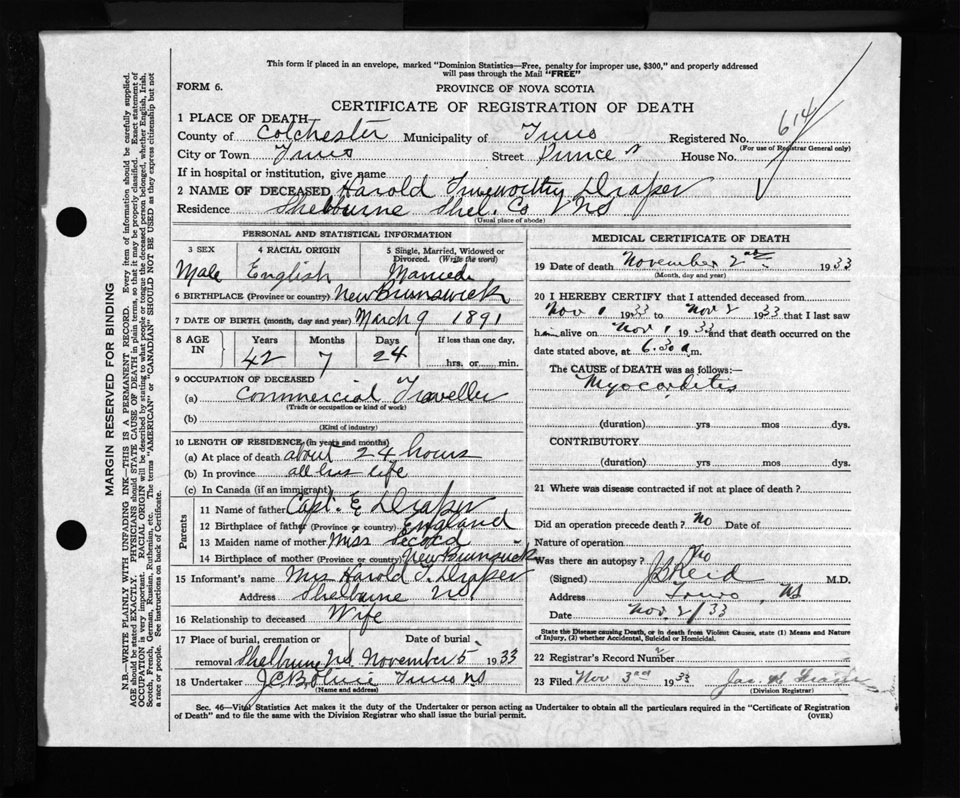 This form if placed in an envelope, marked "Dominion Statistics—Free, penalty for improper use, $300," and properly addressed
will pass through the Mail "FREE"
FORM 6.
PROVINCE OF NOVA SCOTIA
CERTIFICATE OF REGISTRATION OF DEATH
614
1 PLACE OF DEATH
County of Colchester Municipality of Truro Registered No.
(For use of Registrar General only)
City or Town Truro Street Prince St House No.
If in hospital or institution, give name
2 NAME OF DECEASED Harold Trueworthy Draper
Residence Shelbourne Shel. Co NS
(Usual place of abode)
PERSONAL AND STATISTICAL INFORMATION
3 SEX 4 RACIAL ORIGIN 5 Single, Married, Widowed or
Divorced. (Write the word)
Male English Married
6 BIRTHPLACE (Province or country) New Brunswick
7 DATE OF BIRTH (month, day and year) March 9 1891
8 AGE IN Years Months Days If less than one day,
42 7 24 hrs. or min.
9 OCCUPATION OF DECEASED
(a) Commercial Traveller
(Trade or occupation or kind of work)
(b)
(Kind of industry)
10 LENGTH OF RESIDENCE (in years and months)
(a) At place of death about 24 hours
(b) In province all his life
(c) In Canada (if an immigrant)
Parents
11 Name of father Capt. E Draper
12 Birthplace of father (Province or country) England
13 Maiden name of mother Miss Secord
14 Birthplace of mother (Province or country) New Brunswick
15 Informant's name Mrs Harold T. Draper
Address Shelburne NS
16 Relationship to deceased Wife
17 Place of burial, cremation or Date of burial
removal Shelburne NS November 5 1933
18 Undertaker Truro NS
(Name and address)
MEDICAL CERTIFICATE OF DEATH
19 Date of death November 2nd 1933
(Month, day and year)
20 I HEREBY CERTIFY that I attended deceased from
Nov 1 1933 to Nov 2 1933 that I last saw
him alive on Nov 1 1933 and that death occurred on the
date stated above, at 6.30 a m.
The CAUSE of DEATH was as follows:—
Myocarditis
(duration) yrs mos dys.
CONTRIBUTORY
(duration) yrs mos dys.
21 Where was disease contracted if not at place of death?
Did an operation precede death? No Date of
Nature of operation
Was there an autopsy? No
(Signed) J B Reid M.D.
Address Truro, NS
Date Nov 2/33
State the Disease causing Death, or in death from Violent Causes, state (1) Means and Nature
of Injury, (2) whether Accidental, Suicidal or Homicidal.
22 Registrar's Record Number
23 Filed Nov 3rd 1933
(Division Registrar)
Sec. 46—Vital Statistics Act makes it the duty of the Undertaker or person acting as Undertaker to obtain all the particulars required in the "Certificate of Registration
of Death" and to file the same with the Division Registrar who shall issue the burial permit.
(OVER)
MARGIN RESERVED FOR BINDING
N.B.—WRITE PLAINLY WITH UNFADING INK—THIS IS A PERMANENT RECORD. Every item of information should be carefully supplied.
AGE should be stated EXACTLY. PHYSICIANS should STATE CAUSE OF DEATH in plain terms, so that it may be properly classified. Exact statement of
OCCUPATION is very important. RACIAL ORIGIN will be described by stating to what people or tongue the deceased person belonged, whether English, Irish,
Scotch, French, German, Russian, Ruthenian, etc. The terms "AMERICAN" or "CANADIAN" SHOULD NOT BE USED as they express citizenship but not
a race or people. See instructions on back of Certificate.